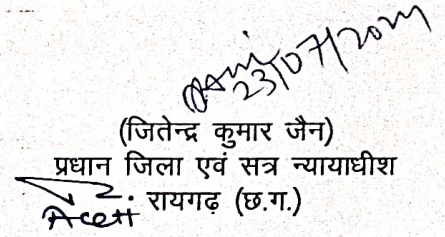 23/07/2024
(जितेन्द्र कुमार जैन)
प्रधान जिला एवं सत्र न्यायाधीश
रायगढ़ (छ.ग.)